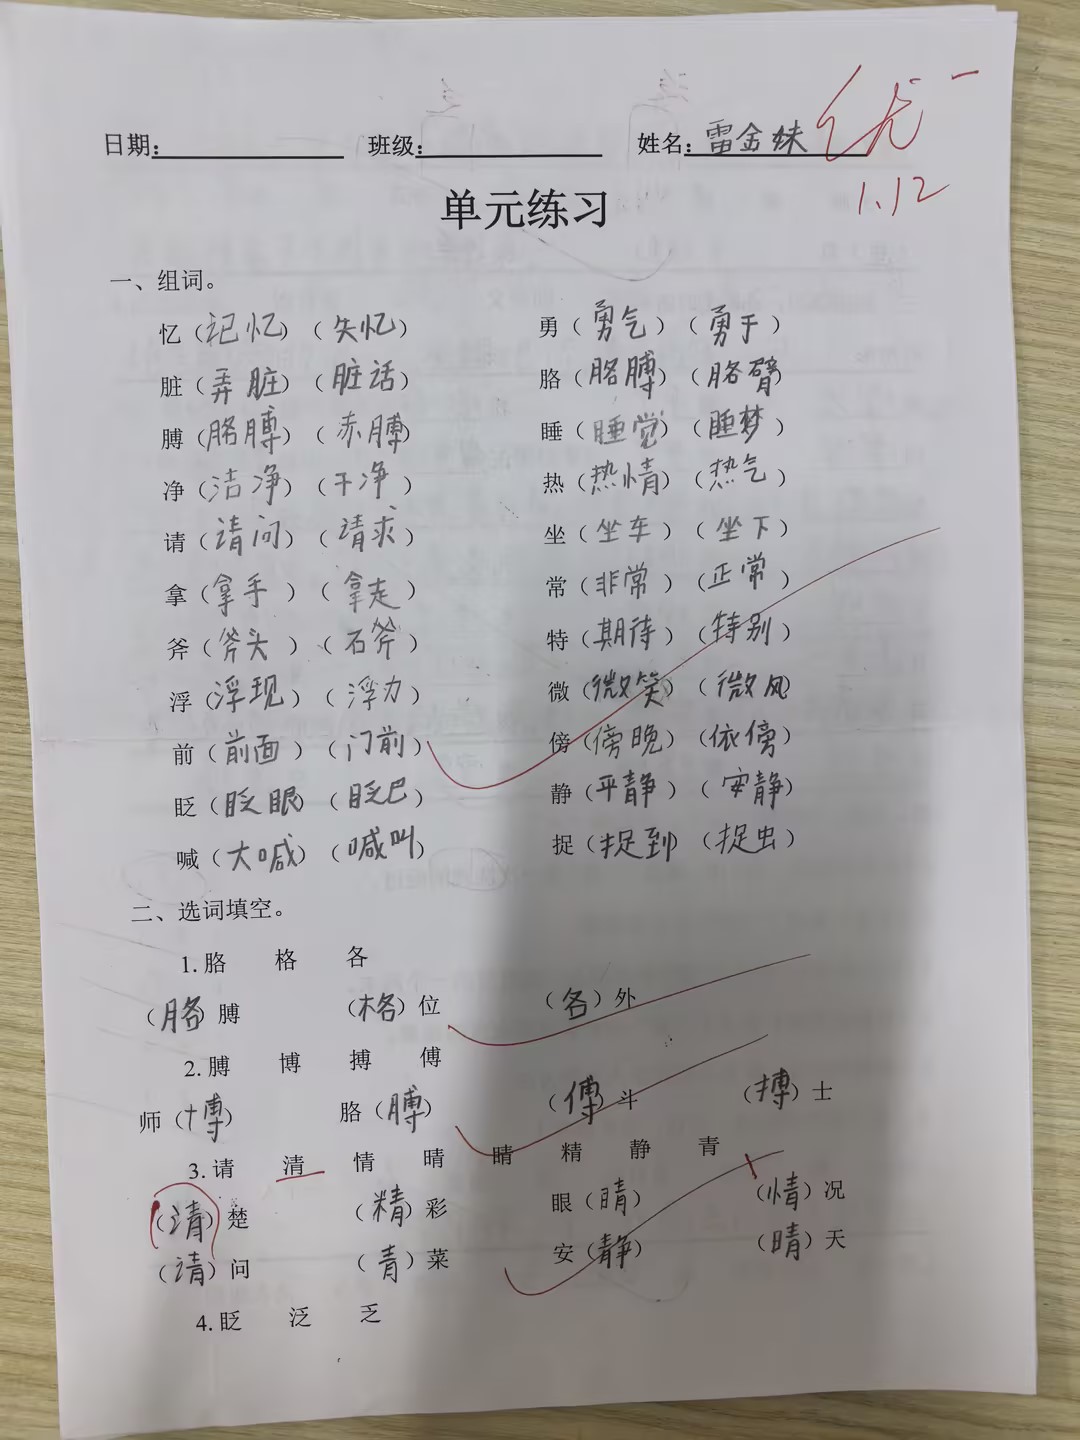 日期：　班级：　姓名：雷金妹 优-
1.12
单元练习
一、组词。
忆（记忆）（失忆） 勇（勇气）（勇于）
脏（弄脏）（脏话） 胳（胳膊）（胳臂）
膊（胳膊）（赤膊） 睡（睡觉）（睡梦）
净（洁净）（干净） 热（热情）（热气）
请（请问）（请求） 坐（坐车）（坐下）
拿（拿手）（拿走） 常（非常）（正常）
斧（斧头）（石斧） 特（期待）（特别）
浮（浮现）（浮力） 微（微笑）（微风）
前（前面）（门前） 傍（傍晚）（依傍）
眨（眨眼）（眨巴） 静（平静）（安静）
喊（大喊）（喊叫） 捉（捉到）（捉虫）
二、选词填空。
1. 胳　格　各
（胳）膊 （格）位 （各）外
2. 膊　博　搏　傅
师（博） 胳（膊） （傅）斗 （搏）士
3. 请　清　情　晴　睛　精　静　青
（请）楚 （精）彩 眼（睛） （情）况
（请）问 （青）菜 安（静） （晴）天
4. 眨　泛　乏